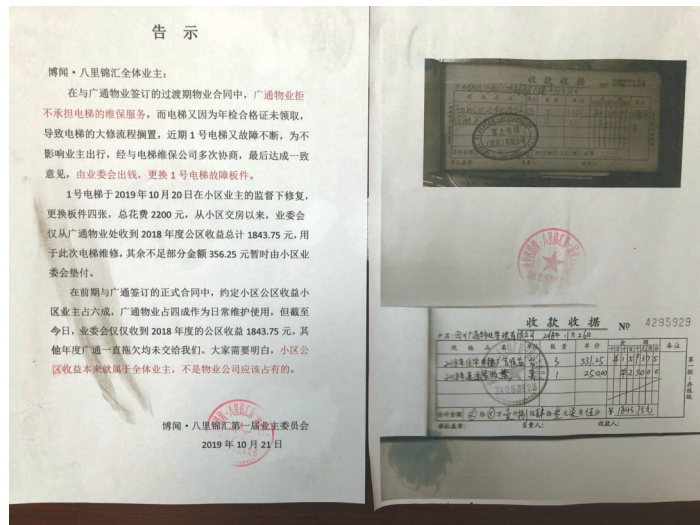 告 示
博闻·八里锦汇全体业主:
在与广通物业签订的过渡期物业合同中,广通物业拒
不承担电梯的维保服务,而电梯又因为年检合格证未领取,
导致电梯的大修流程搁置,近期1号电梯又故障不断,为不
影响业主出行,经与电梯维保公司多次协商,最后达成一致
意见,由业委会出钱,更换1号电梯故障板件。
1号电梯于2019年10月20日在小区业主的监督下修复,
更换板件四张,总花费2200元,从小区交房以来,业委会
仅从广通物业处收到2018年度公区收益总计1843.75元,用
于此次电梯维修,其余不足部分金额356.25元暂时由小区业
委会垫付。
在前期与广通签订的正式合同中,约定小区公区收益小
区业主占六成,广通物业占四成作为日常维护使用,但截至
今日,业委会仅仅收到2018年度的公区收益1843.75元。其
他年度广通一直拖欠均未交给我们。大家需要明白,小区公
区收益本来就属于全体业主,不是物业公司应该占有的。
博闻·八里锦汇第一届业主委员会
2019年10月21日
收款收据
No
富士电梯
收款收据 No 4295929
2018年11月26日
规格品名 单位 数量 单价 金额
3 531.25
1 250.00
合计金额 ¥1843.75元
单位盖章: 负责人: 收款人: